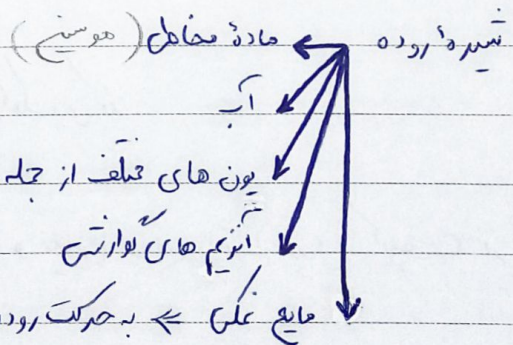 شیرهٔ روده ← مادهٔ مخاطی (موسین)
آب
یون های مختلف از جمله
آنزیم های گوارشی
مایع نمکی ⇐ به حرکت روده